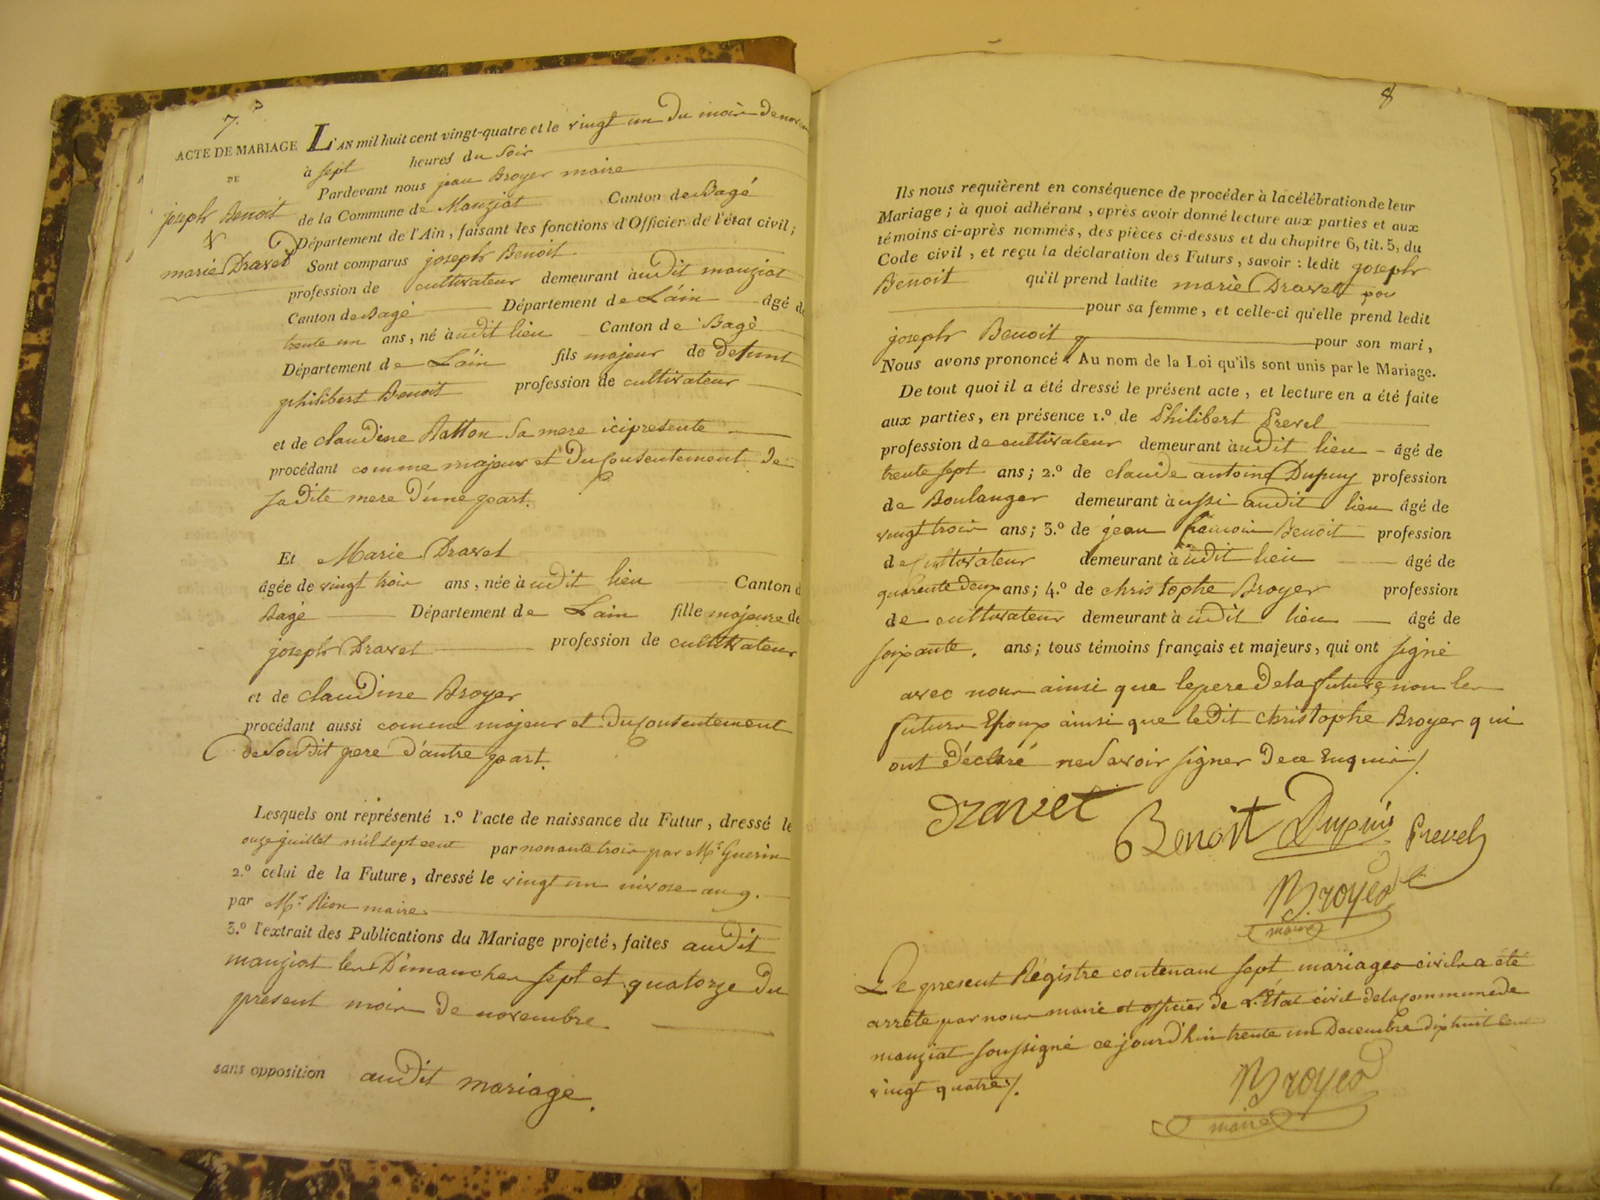 7.
ACTE DE MARIAGE
DE
joseph Benoit
&
marie Dravet
L'AN mil huit cent vingt-quatre et le vingt un du mois de novem
à sept heures du soir
Pardevant nous jean Broyer maire
de la Commune de Manziat Canton de Bagé
Département de l'Ain, faisant les fonctions d'Officier de l'état civil;
Sont comparus joseph Benoit
profession de cultivateur demeurant audit manziat
Canton de Bagé Département de L'ain âgé de
trente un ans, né audit lieu Canton de Bagé
Département de L'ain fils majeur de defunt
philibert Benoit profession de cultivateur
et de claudine Ratton sa mere ici presente
procédant comme majeur et du consentement de
sadite mere d'une part.
Et Marie Dravet
âgée de vingt trois ans, née audit lieu Canton d
Bagé Département de L'ain fille majeure de
joseph Dravet profession de cultivateur
et de claudine Broyer
procédant aussi comme majeur et du consentement
de sondit pere d'autre part.
Lesquels ont représenté 1.º l'acte de naissance du Futur, dressé le
onze juillet mil sept cent par nonante trois par Mr Guerin
2.º celui de la Future, dressé le vingt un nivose an 9.
par Mr Rion maire
3.º l'extrait des Publications du Mariage projeté, faites audit
manziat les Dimanches sept et quatorze du
present mois de novembre
sans opposition audit mariage.
8
Ils nous requièrent en conséquence de procéder à la célébration de leur
Mariage; à quoi adhérant, après avoir donné lecture aux parties et aux
témoins ci-après nommés, des pièces ci-dessus et du chapitre 6, tit. 5, du
Code civil, et reçu la déclaration des Futurs, savoir: ledit joseph
Benoit qu'il prend ladite marie Dravet pour
pour sa femme, et celle-ci qu'elle prend ledit
joseph Benoit pour son mari,
Nous avons prononcé: Au nom de la Loi qu'ils sont unis par le Mariage.
De tout quoi il a été dressé le présent acte, et lecture en a été faite
aux parties, en présence 1.º de Philibert Prevel
profession de cultivateur demeurant audit lieu âgé de
trente sept ans; 2.º de claude antoine Dupuy profession
de Boulanger demeurant aussi audit lieu âgé de
vingt trois ans; 3.º de jean francois Benoit profession
de cultivateur demeurant audit lieu âgé de
quarente deux ans; 4.º de christophe Broyer profession
de cultivateur demeurant audit lieu âgé de
soixante. ans; tous témoins français et majeurs, qui ont signé
avec nous ainsi que le pere de la future non les
futurs Epoux ainsi que ledit christophe Broyer qui
ont déclaré ne savoir signer de ce Enquis /.
Dravet
Benoit Dupuis Prevel
Broyer
maire
Le present Régistre contenant sept mariages civils a été
arrêté par nous maire et officier de L'État civil de la commune de
manziat soussigné ce jourd'hui trente un Decembre dix huit cent
vingt quatre /.
Broyer
maire